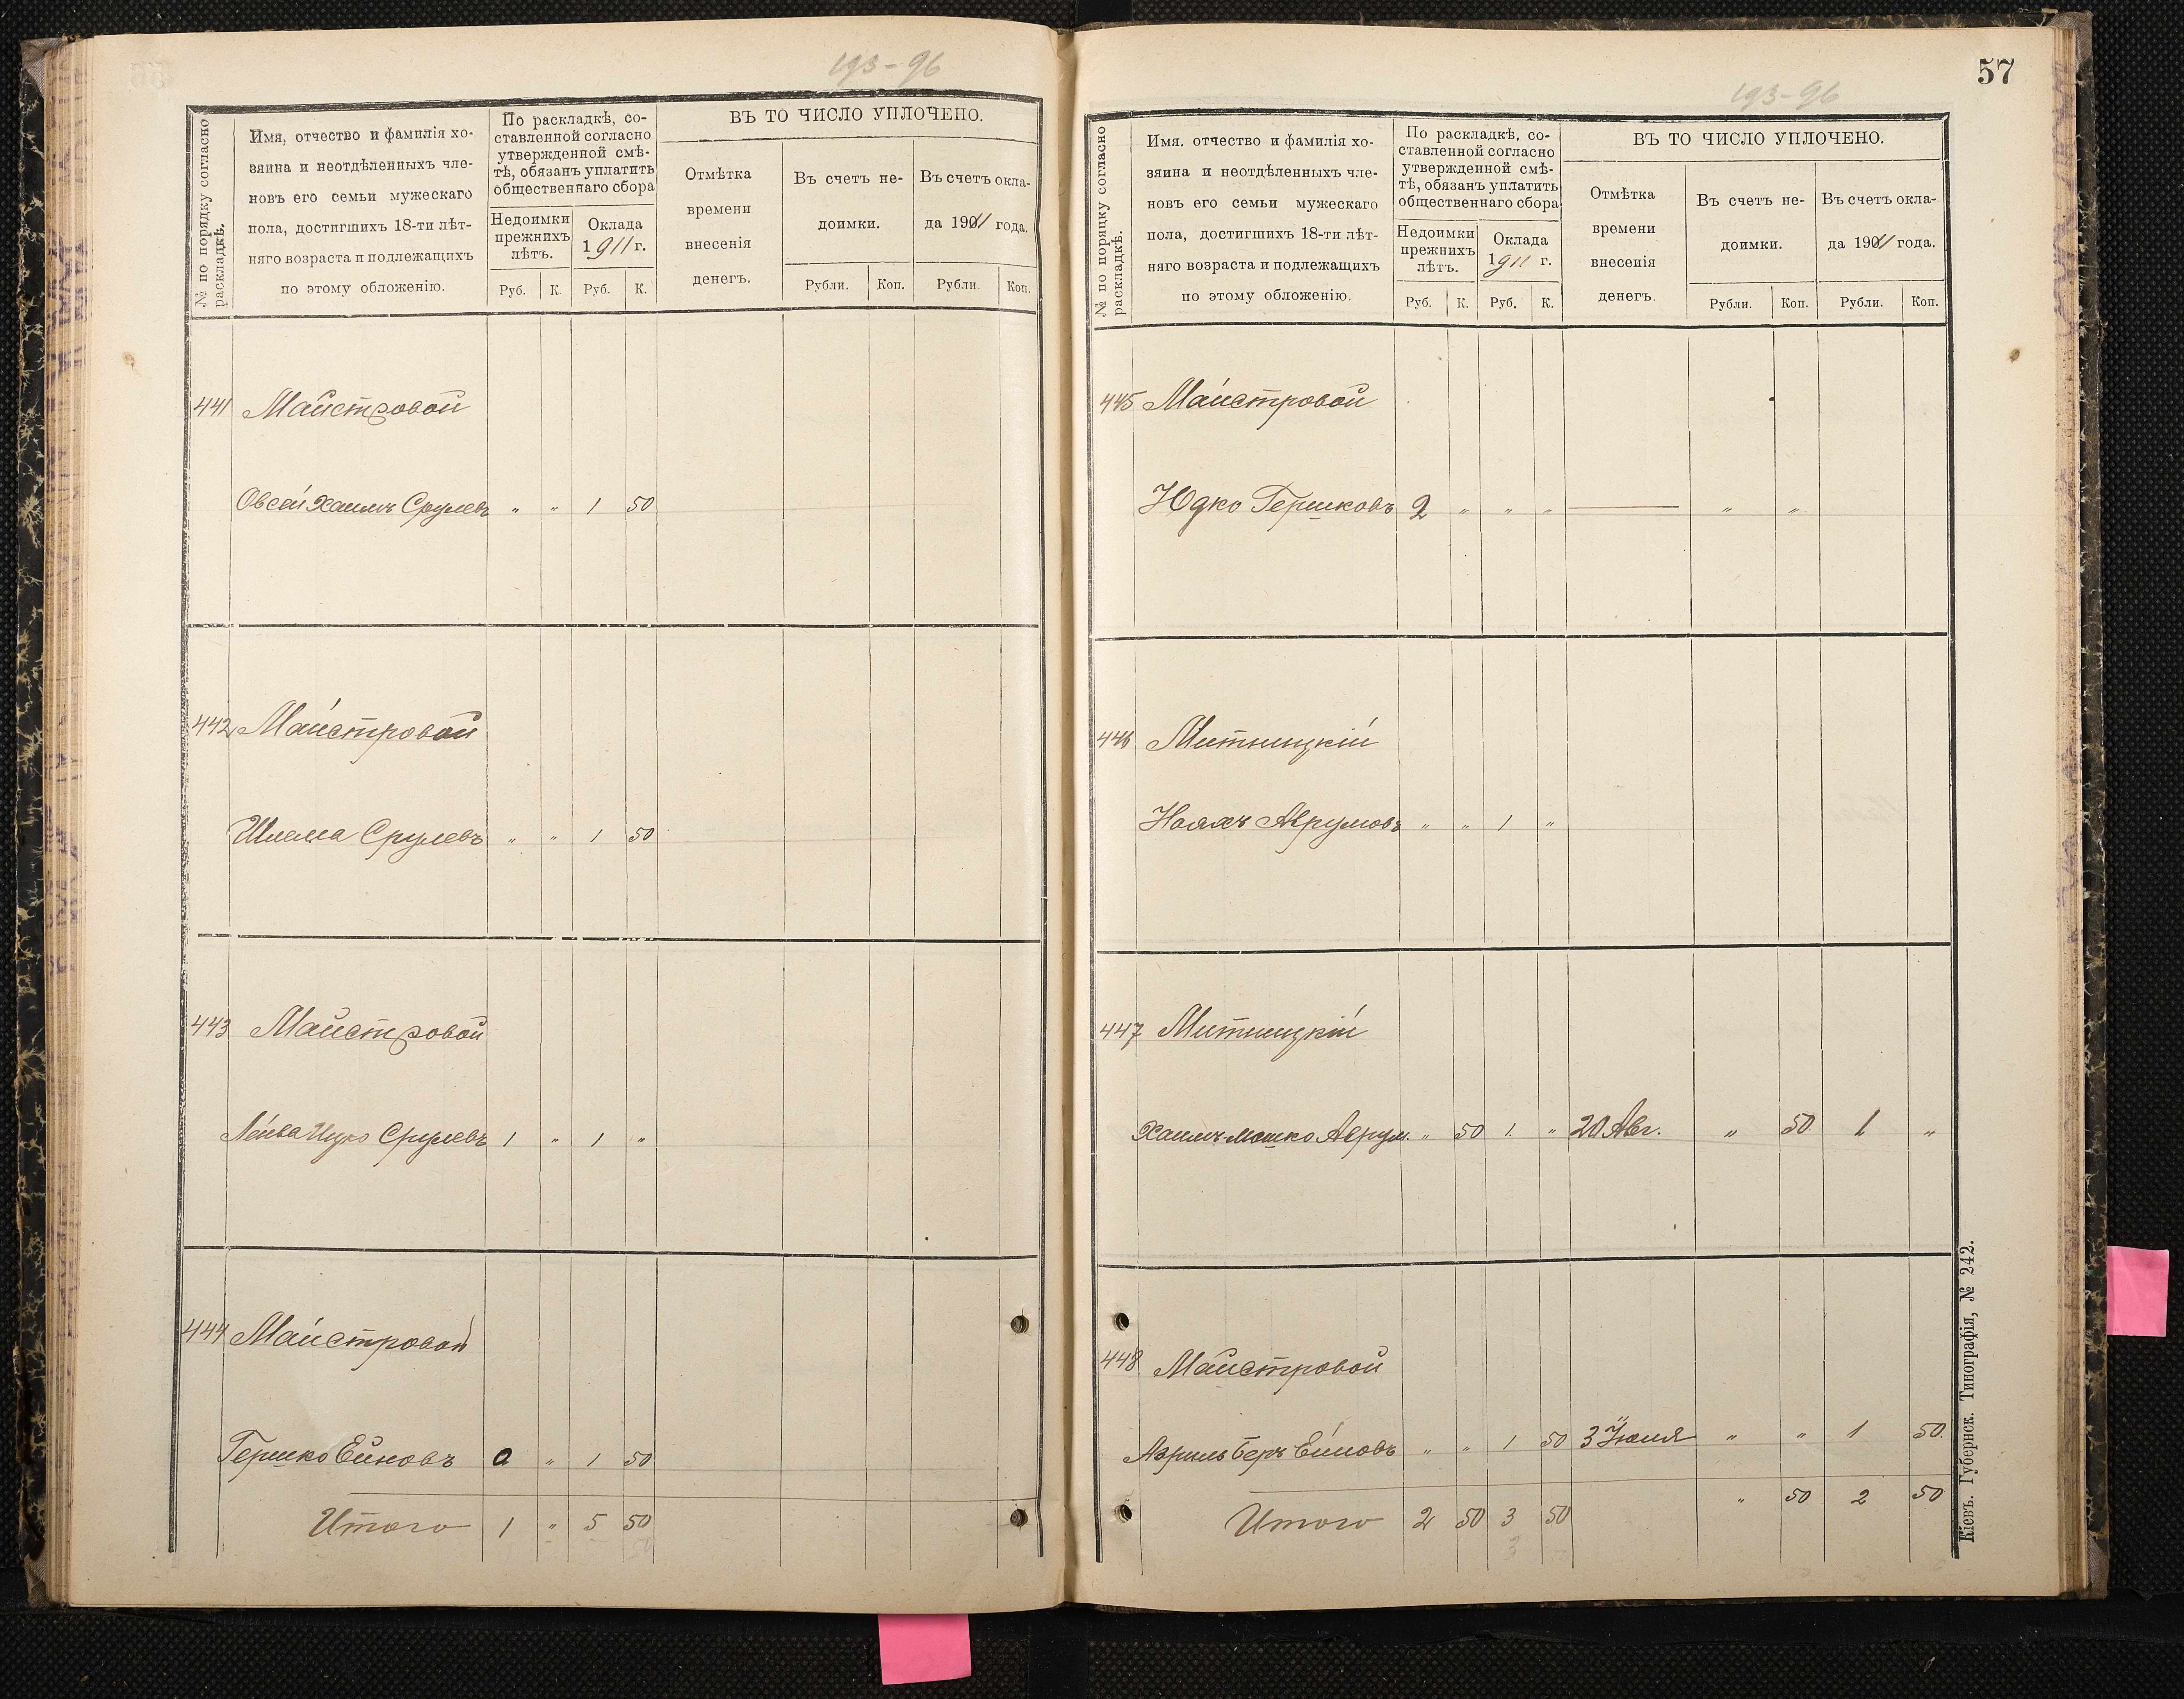 193-96
№ по порядку согласно
раскладкѣ.
Имя, отчество и фамилія хо-
зяина и неотдѣленныхъ чле-
новъ его семьи мужескаго
пола, достигшихъ 18-ти лѣт-
няго возраста и подлежащихъ
по этому обложенію.
По раскладкѣ, со-
ставленной согласно
утвержденной смѣ-
тѣ, обязанъ уплатить
общественнаго сбора
Недоимки
прежнихъ
лѣтъ.
Оклада
1911 г.
Руб. К. Руб. К.
ВЪ ТО ЧИСЛО УПЛОЧЕНО.
Отмѣтка
времени
внесенія
денегъ.
Въ счетъ не-
доимки.
Въ счетъ окла-
да 1911 года.
Рубли. Коп. Рубли. Коп.
441 Майстровой
Овсей Хаимъ Срулевъ " " 1 50
442 Майстровой
Шлема Срулевъ " " 1 50
443 Майстровой
Лейва Ицко Срулевъ 1 " 1 "
444 Майстровой
Гершко Ейновъ 0 " 1 50
Итого 1 " 5 50
57
193-96
№ по порядку согласно
раскладкѣ.
Имя. отчество и фамилія хо-
зяина и неотдѣленныхъ чле-
новъ его семьи мужескаго
пола, достигшихъ 18-ти лѣт-
няго возраста и подлежащихъ
по этому обложенію.
По раскладкѣ, со-
ставленной согласно
утвержденной смѣ-
тѣ, обязанъ уплатить
общественнаго сбора
Недоимки
прежнихъ
лѣтъ.
Оклада
1911 г.
Руб. К. Руб. К.
ВЪ ТО ЧИСЛО УПЛОЧЕНО.
Отмѣтка
времени
внесенія
денегъ.
Въ счетъ не-
доимки.
Въ счетъ окла-
да 1911 года.
Рубли. Коп. Рубли. Коп.
445 Майстровой
Юдко Гершковъ 2 " " " — " "
446 Митницкій
Ноахъ Аврумовъ " " 1 "
447 Митницкій
Хаимъ Мошко Аврум. " 50 1 " 20 Авг. " 50 1 "
448 Майстровой
Азриль Беръ Ейновъ " " 1 50 3 Іюля " " 1 50.
" 50 2 50
Итого 2 50 3 50
3
Кіевъ. Губернск. Типографія, № 242.